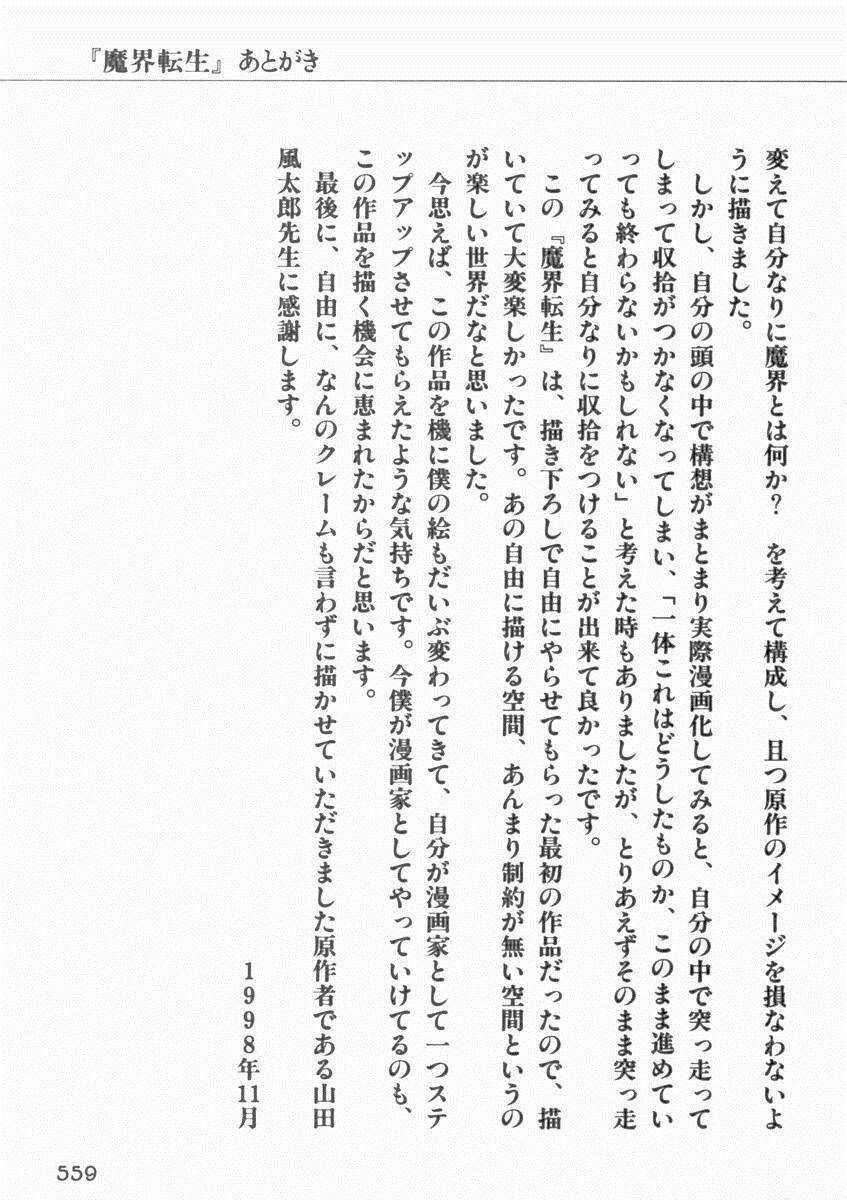 『魔界転生』あとがき
変えて自分なりに魔界とは何か？　を考えて構成し、且つ原作のイメージを損なわないよ
うに描きました。
しかし、自分の頭の中で構想がまとまり実際漫画化してみると、自分の中で突っ走って
しまって収拾がつかなくなってしまい、「一体これはどうしたものか、このまま進めてい
っても終わらないかもしれない」と考えた時もありましたが、とりあえずそのまま突っ走
ってみると自分なりに収拾をつけることが出来て良かったです。
この『魔界転生』は、描き下ろしで自由にやらせてもらった最初の作品だったので、描
いていて大変楽しかったです。あの自由に描ける空間、あんまり制約が無い空間というの
が楽しい世界だなと思いました。
今思えば、この作品を機に僕の絵もだいぶ変わってきて、自分が漫画家として一つステ
ップアップさせてもらえたような気持ちです。今僕が漫画家としてやっていけてるのも、
この作品を描く機会に恵まれたからだと思います。
最後に、自由に、なんのクレームも言わずに描かせていただきました原作者である山田
風太郎先生に感謝します。
1998年11月
559